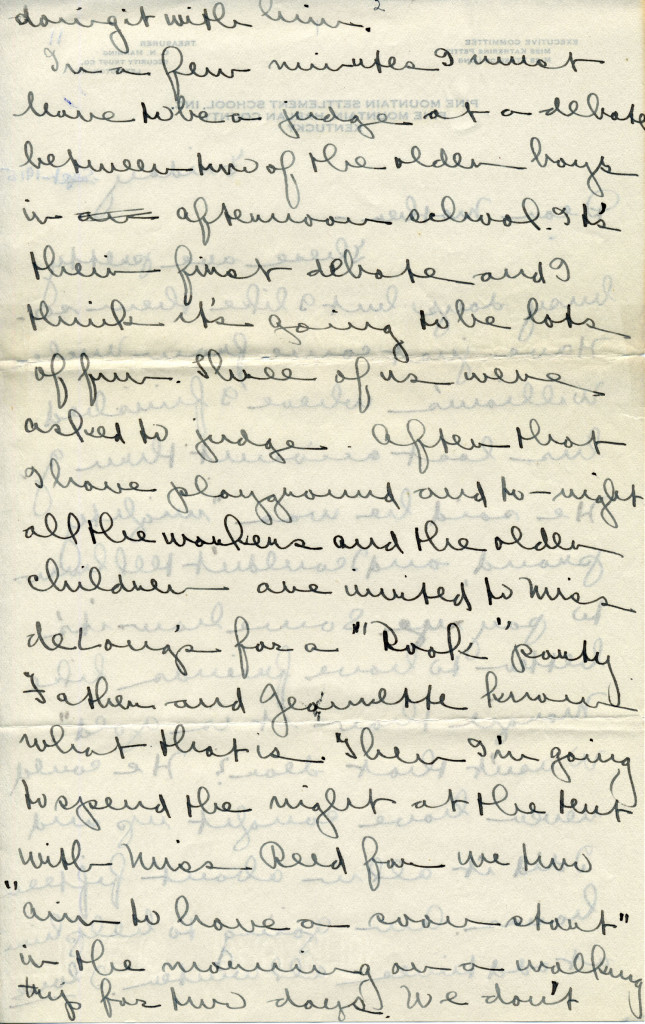 doing it with him. 2
In a few minutes I must
leave to be a judge at a debate
between two of the older boys
in afternoon school. It's
their first debate and I
think it's going to be lots
of fun. Three of us were
asked to judge. After that
I have playground and to-night
all the workers and the older
children are invited to Miss
deLong's for a "Rook" party
Father and Jeannette know
what that is. Then I'm going
to spend the night at the tent
with Miss Reed for we two
"aim to have a soon start"
in the morning on a walking
trip for two days. We don't